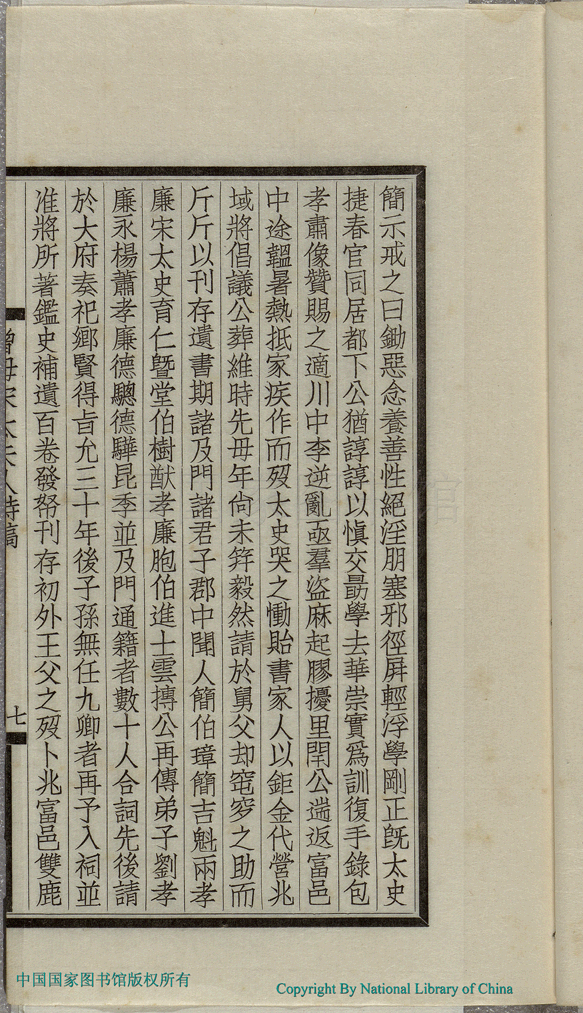 簡示戒之曰鋤惡念養善性絕淫朋塞邪徑屏輕浮學剛正旣太史
捷春官同居都下公猶諄諄以愼交勗學去華崇實爲訓復手錄包
孝肅像贊賜之適川中李逆亂亟羣盜麻起膠擾里閈公遄返富邑
中途韞暑熱抵家疾作而歿太史哭之慟貽書家人以鉅金代營兆
域將倡議公葬維時先毋年尙未笄毅然請於舅父却窀穸之助而
斤斤以刊存遺書期諸及門諸君子郡中聞人簡伯璋簡吉魁兩孝
廉宋太史育仁曁堂伯樹猷孝廉胞伯進士雲摶公再傳弟子劉孝
廉永楊蕭孝廉德驄德驊昆季並及門通籍者數十人合詞先後請
於大府奏祀鄉賢得旨允三十年後子孫無任九卿者再予入祠並
准將所著鑑史補遺百卷發帑刊存初外王父之歿卜兆富邑雙鹿
七
中国国家图书馆版权所有
Copyright By National Library of China